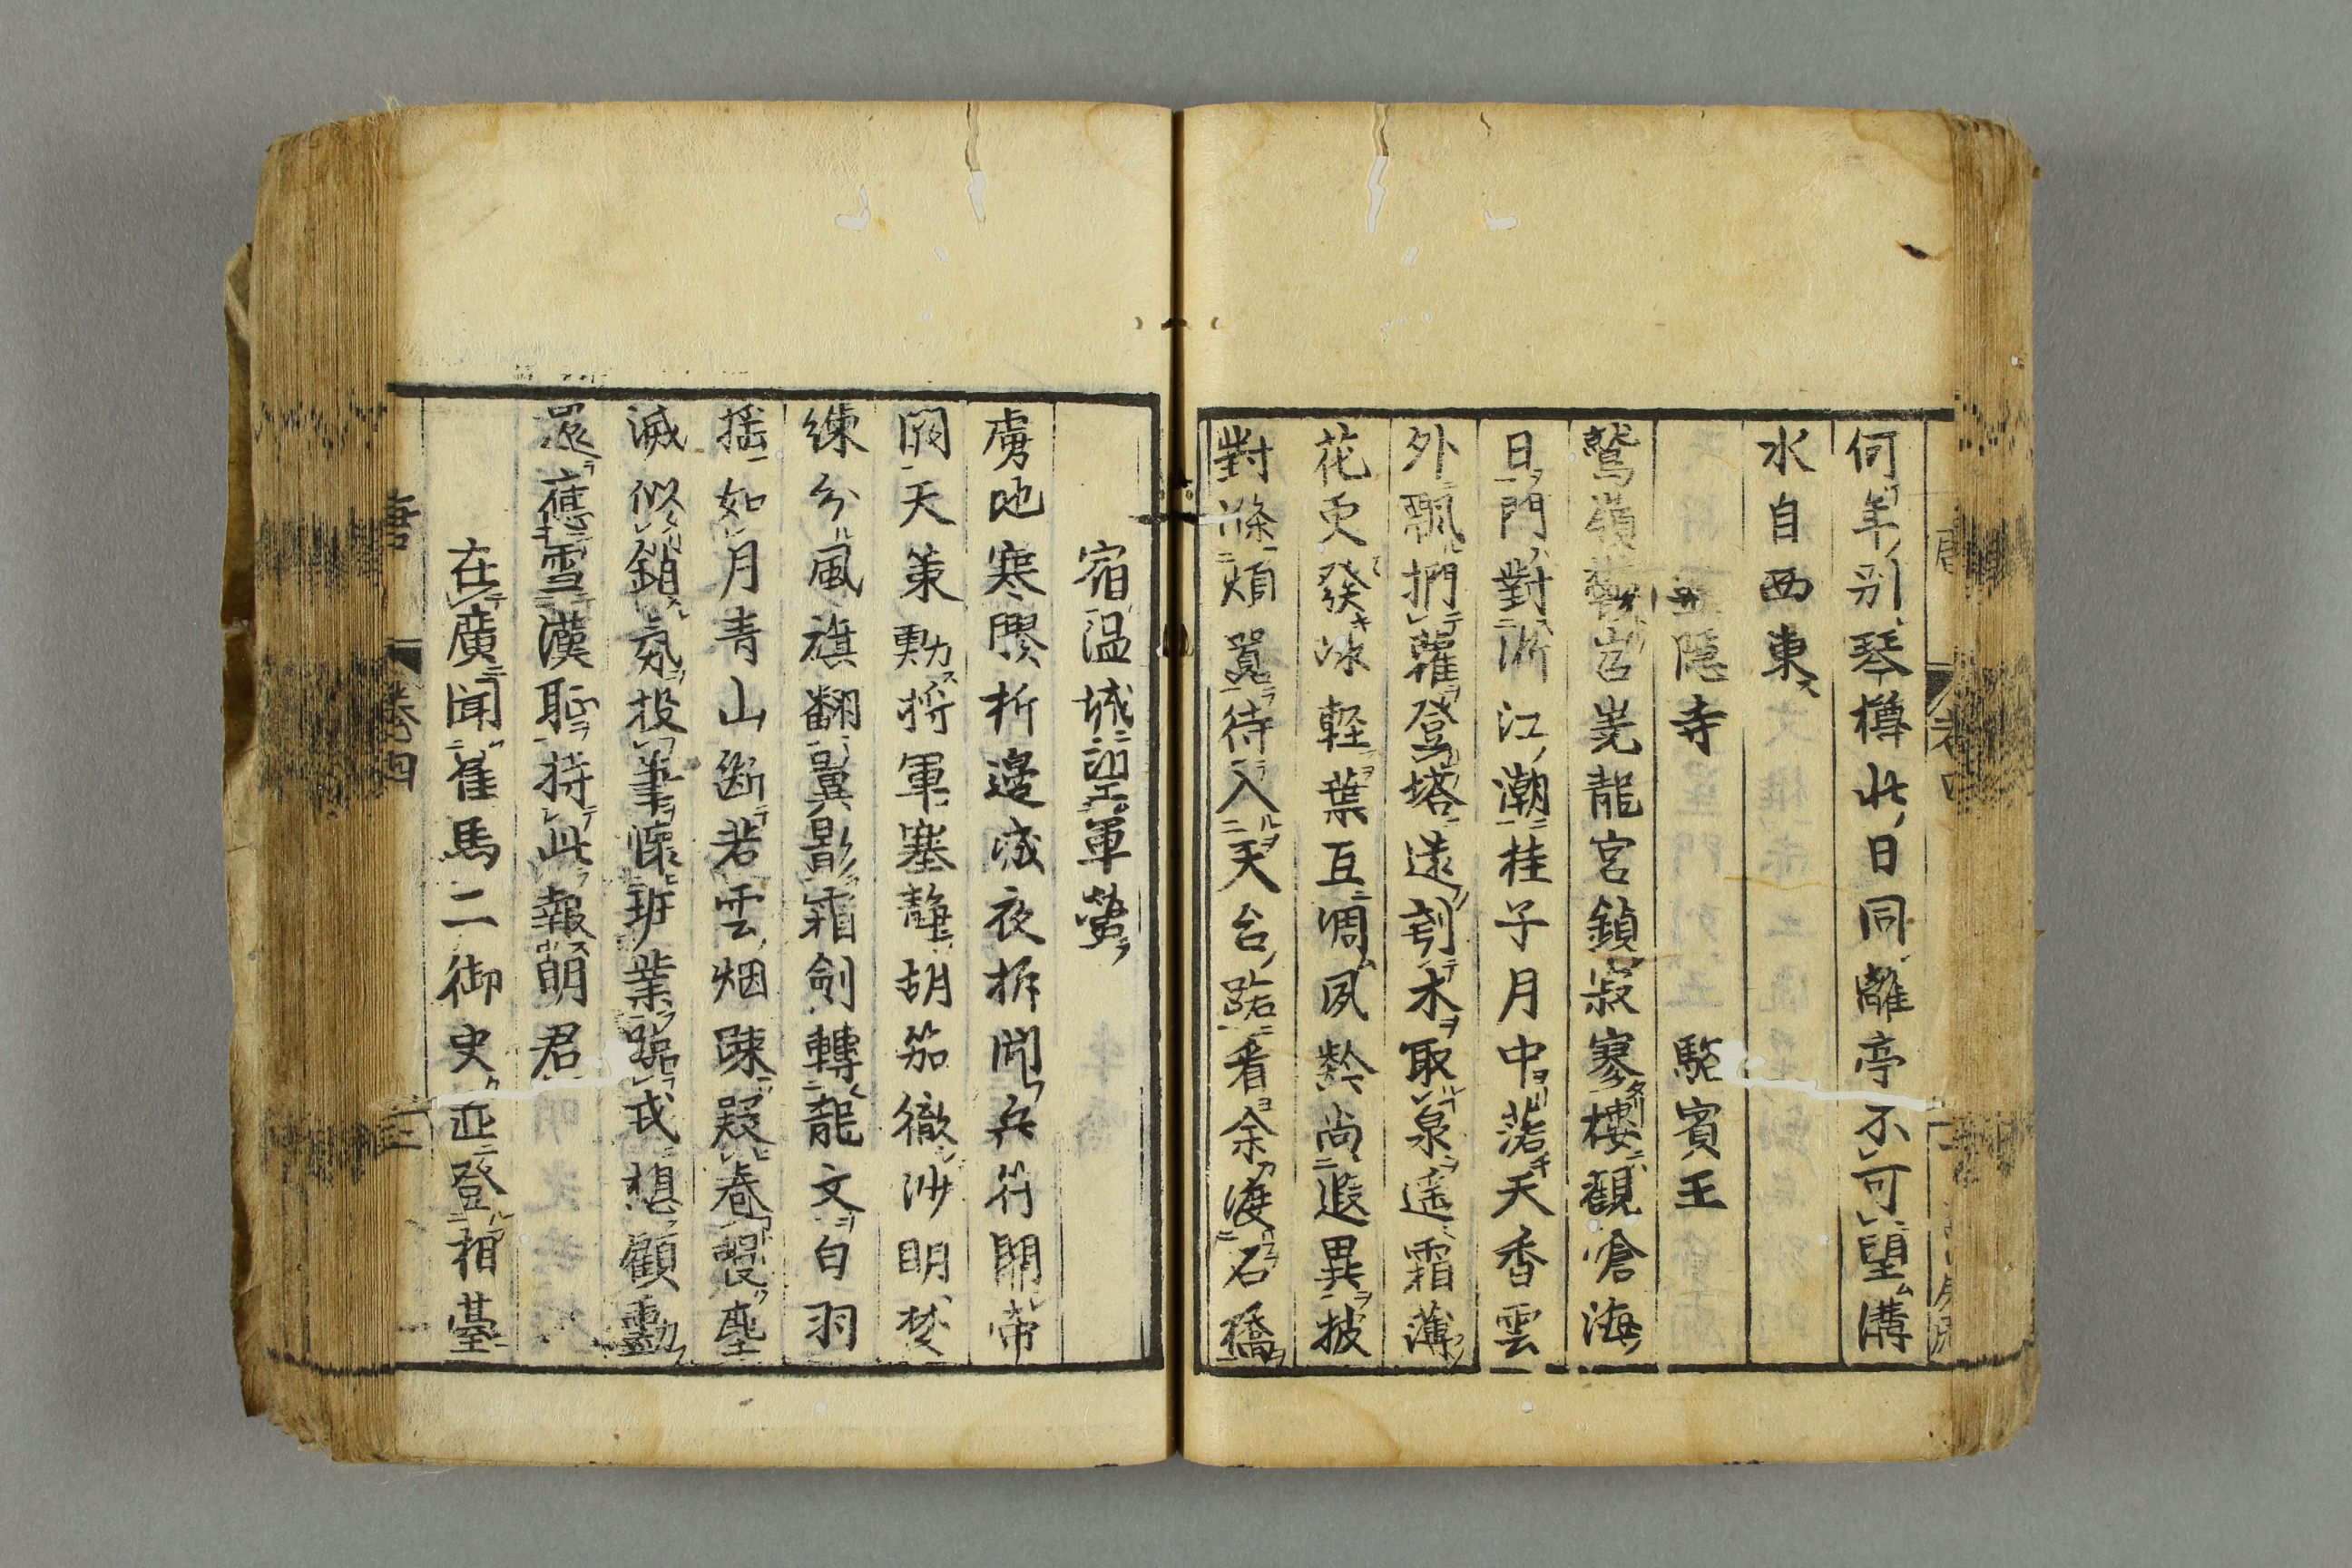 何年別琴樽此日同離亭不可望溝
水自西東
靈隱寺 駱賓王
鷲嶺鬱岧嶤龍宮鎖寂寥樓觀滄海
日門對浙江潮桂子月中落天香雲
外飄捫蘿登塔遠刳木取泉遙霜薄
花更發冰輕葉互凋夙齡尚遐異披
對滌煩囂待入天台路看余渡石橋
宿温城望軍營
虜地寒膠折邊城夜柝聞兵符關帝
闕天策動將軍塞靜胡笳徹沙明楚
練分風旗翻翼影霜劍轉龍文白羽
搖如月青山斷若雲烟踈疑卷幔塵
滅似銷氛投筆懷班業臨戎想顧勳
還應雪漢恥持此報明君
在廣聞崔馬二御史並登相臺
唐 卷四 三